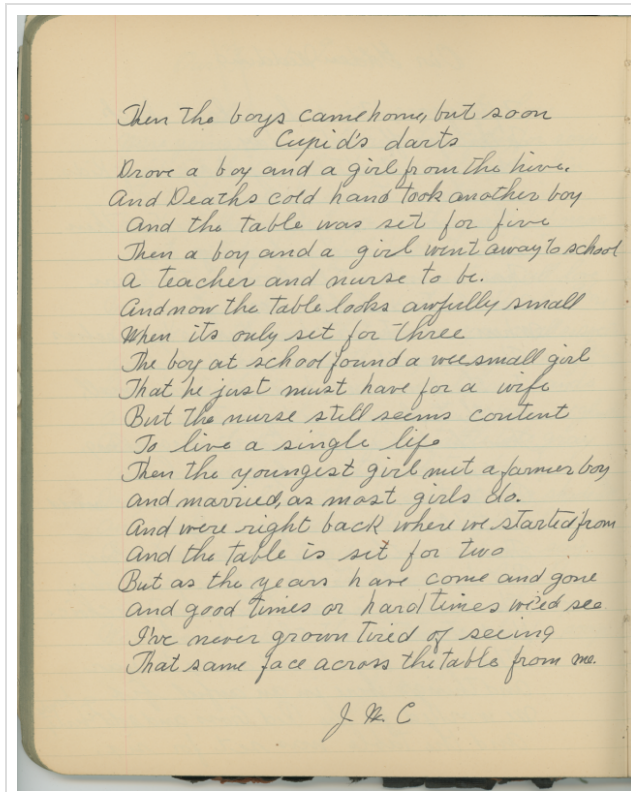 Then the boys came home, but soon
Cupid's darts
Drove a boy and a girl from the hive.
And Deaths cold hand took another boy
And the table was set for five
Then a boy and a girl went away to school
A teacher and nurse to be.
And now the table looks awfully small
When its only set for three
The boy at school found a wee small girl
That he just must have for a wife
But the nurse still seems content
To live a single life
Then the youngest girl met a farmer boy
And married, as most girls do.
And were right back where we started from
And the table is set for two
But as the years have come and gone
And good times or hard times we'ed see
I've never grown tired of seeing
That same face across the table from me.
J. M. C